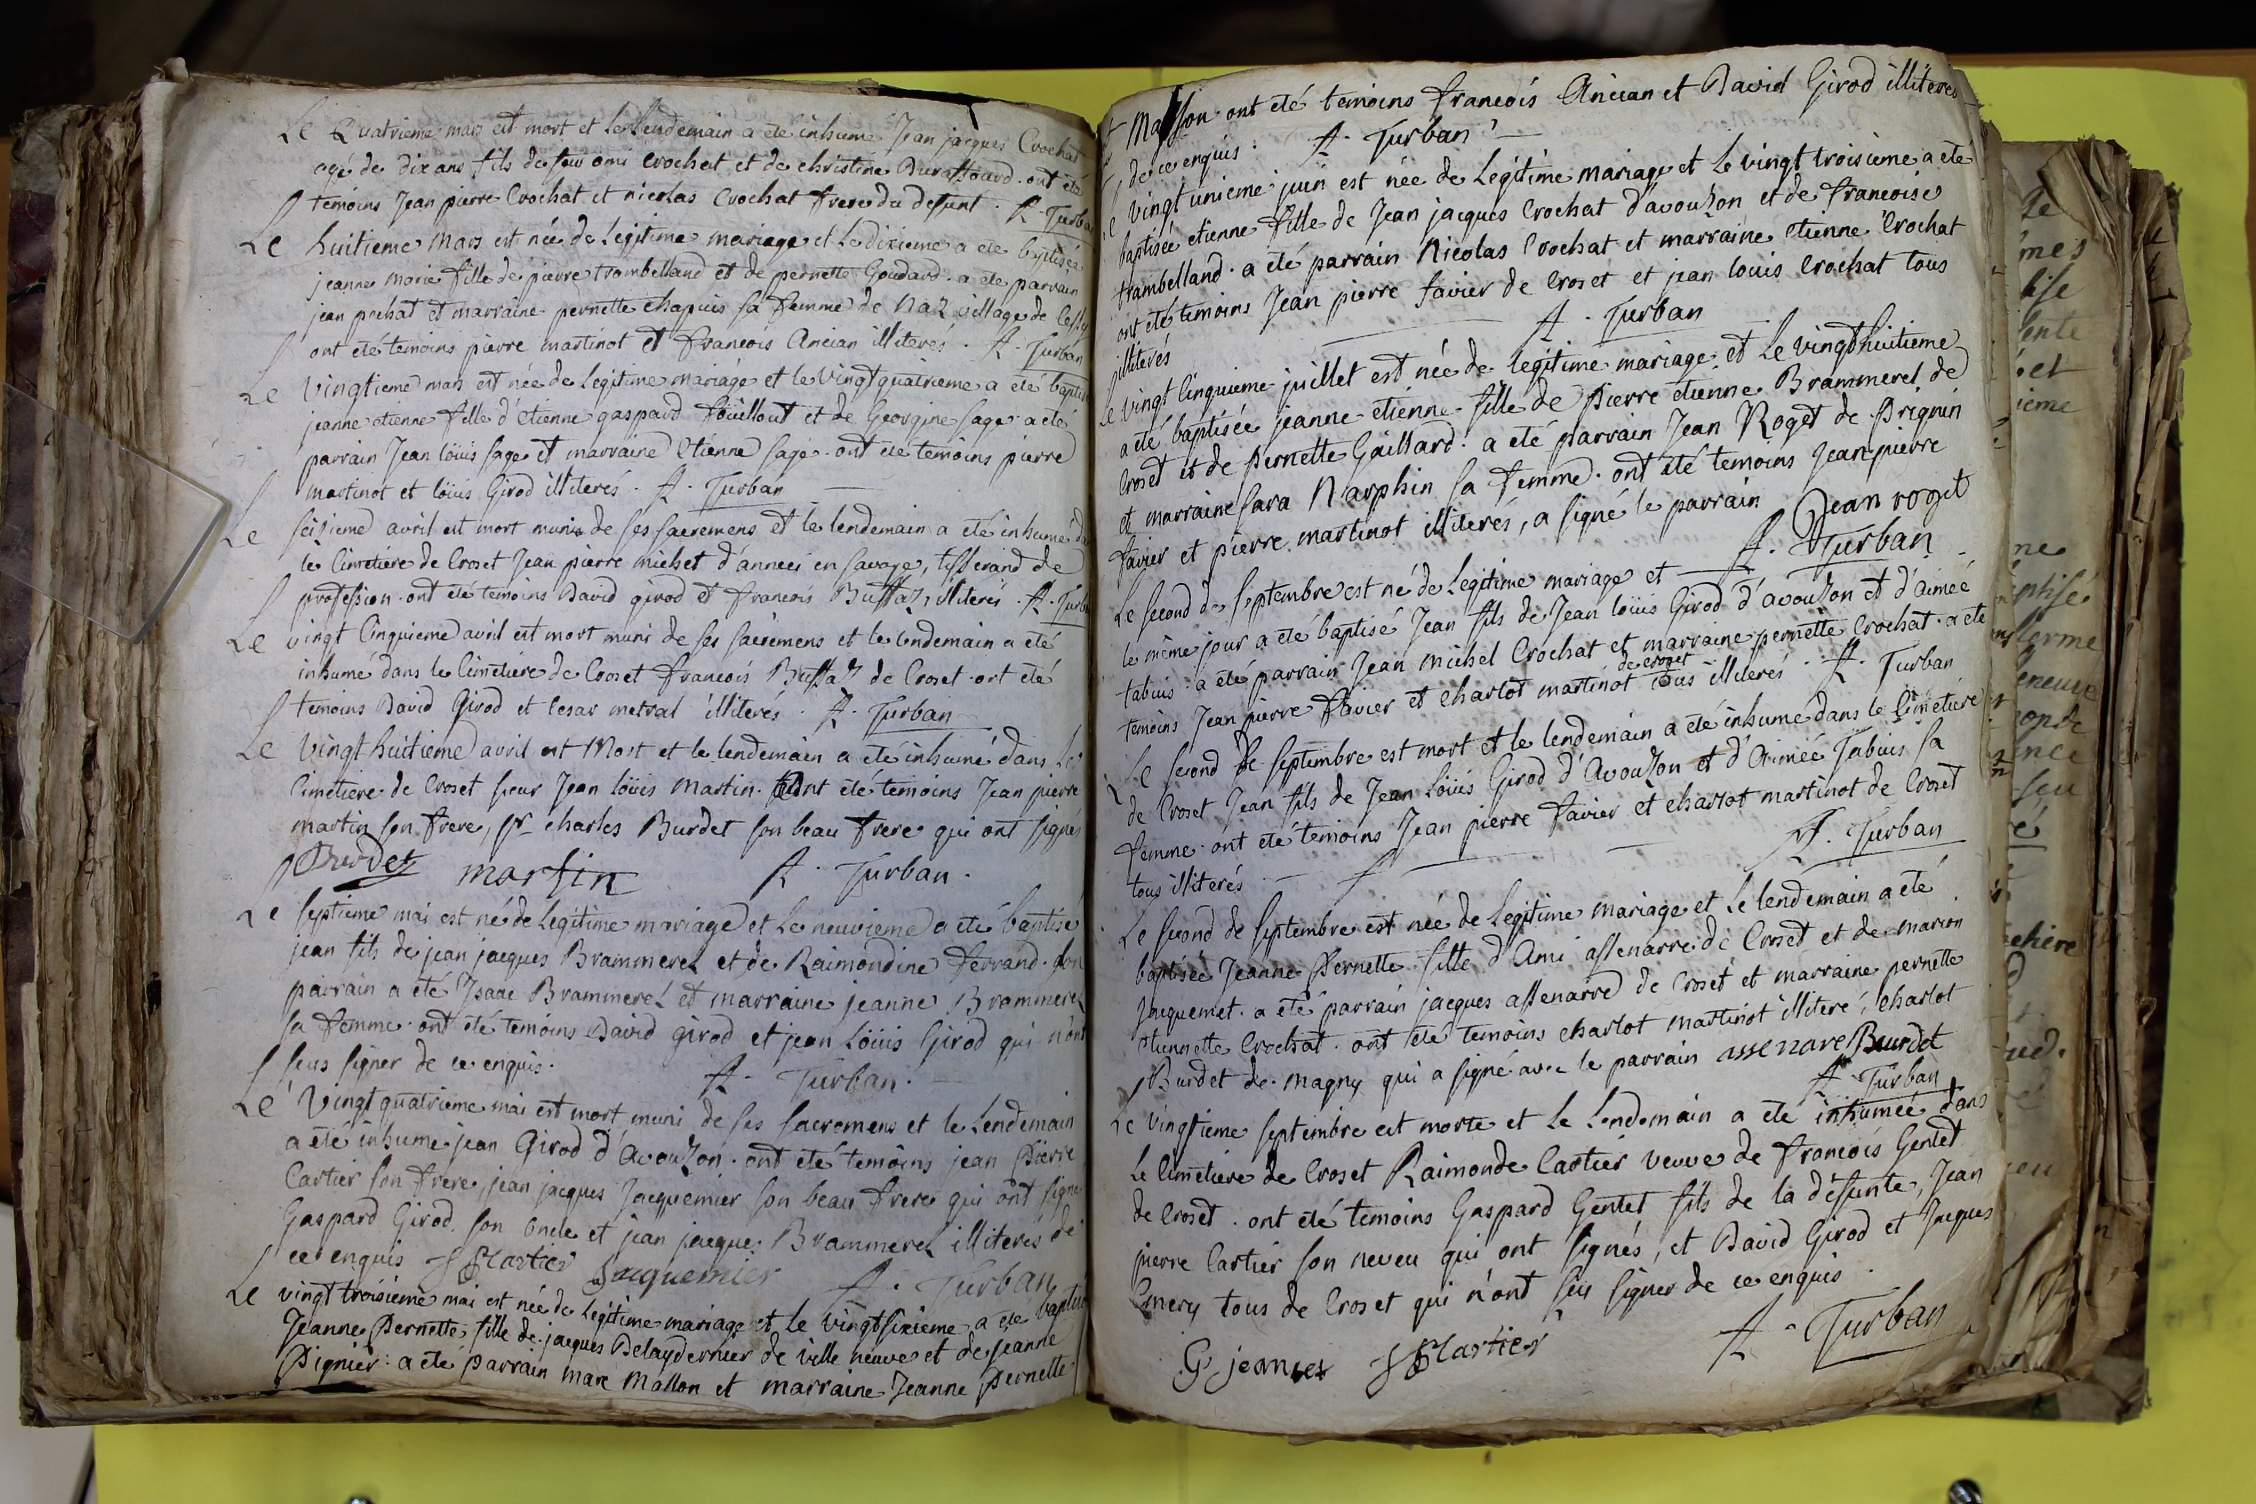 Le Quatrieme mars est mort et le lendemain a été inhumé Jean jacques Crochat
agé de dix ans fils de feu ami Crochat et de christine Duraffourd. ont été
temoins Jean pierre Crochat et nicolas Crochat frere du defunt. A. Turban
Le huitieme Mars est née de legitime mariage et le dixieme a été baptisée
jeanne marie fille de pierre trambelland et de pernette Goudard. a été parrain
jean pochat et marraine pernette chapuis sa femme de Naz village de Cessy
ont été temoins pierre martinot et francois Ancian illiterés. A. Turban
Le vingtieme mars est née de legitime mariage et le vingt quatrieme a été baptisée
jeanne etienne fille d'etienne gaspard fouillout et de Georgine sage. a été
parrain Jean loüis sage et marraine Etienne sage. ont été temoins pierre
martinot et loüis Girod illiterés. A. Turban
Le seizieme avril est mort munis de ses sacremens et le lendemain a été inhumé dans
le Cimetiere de Croset Jean pierre michet d'anneci en savoye, tisserand de
profession. ont été temoins David girod et francois Buffaz, illiterés. A. Turban
Le vingt Cinquieme avril est mort muni de ses sacremens et le lendemain a été
inhumé dans le Cimetiere de Croset francois Buffaz de Croset. ont été
temoins David Girod et Cesar metral illiterés. A. Turban
Le vingt huitieme avril est Mort et le lendemain a été inhumé dans le
Cimetiere de Croset sieur Jean loüis Martin. ont été temoins Jean pierre
martin son frere, sr charles Burdet son beau frere qui ont signés
Burdet martin A. Turban.
Le septieme mai est né de legitime mariage et le neuvieme a été baptisé
jean fils de jean jacques Brammerel et de Raimondine ferrand. son
parrain a été Isaac Brammerel et marraine jeanne Brammerel
sa femme. ont été temoins David girod et jean Loüis Girod qui n'ont
seus signer de ce enquis. A. Turban.
Le Vingt quatrieme mai est mort muni de ses sacremens et le lendemain
a été inhumé jean Girod d'Avouzon. ont été temoins jean Pierre
Cartier son frere, jean jacques Jacquemier son beau frere qui ont signé
Gaspard Girod son oncle et jean jacques Brammerel illiterés de
ce enquis JP Cartier Jacquemier A. Turban
Le vingt troisieme mai est née de legitime mariage et le vingt sixieme a été baptisée
Jeanne Pernette fille de jacques Delaydernier de ville neuve et de jeanne
Pignier. a été parrain marc Masson et marraine Jeanne Pernette
Masson. ont été temoins francois Ancian et David Girod illiterés
de ce enquis. A. Turban
Le vingt unieme juin est née de Legitime mariage et Le vingt troisieme a été
baptisée etienne fille de Jean jacques Crochat d'avouzon et de francoise
trambelland. a été parrain Nicolas Crochat et marraine etienne Crochat
ont été temoins Jean pierre favier de Croset et jean louis Crochat tous
illiterés A. Turban
Le vingt Cinquieme juillet est née de legitime mariage et Le vingt huitieme
a été baptisée jeanne etienne fille de Pierre etienne Brammerel de
Croset et de Pernette Gaillard. a été parrain Jean Roget de Prignin
et marraine sara Narphin sa femme. ont été temoins Jean pierre
favier et pierre martinot illiterés, a signé le parrain Jean roget
A. Turban
Le second de septembre est né de Legitime mariage et
le même jour a été baptisé Jean fils de Jean loüis Girod d'avouzon et d'aimée
tabuis. a été parrain Jean michel Crochat et marraine pernette Crochat. a été
temoins Jean pierre favier et charlot martinot de croset tous illiterés. A. Turban
Le second de septembre est mort et le lendemain a été inhumé dans le Cimetiére
de Croset Jean fils de Jean Loüis Girod d'Avouzon et d'Aimée Tabuis sa
femme. ont été temoins Jean pierre favier et charlot martinot de Croset
tous illiterés. A. Turban
Le second de septembre est née de Legitime mariage et Le lendemain a été
baptisée Jeanne Pernette fille d'Ami assenarre de Croset et de marion
Jacquemet. a été parrain jacques assenarre de Croset et marraine pernette
etiennette Crochat. ont été temoins charlot martinot illiteré, charlot
Burdet de magny qui a signé avec le parrain assenare Burdet
A. Turban
Le vingtieme septembre est morte et Le Lendemain a été inhumée dans
Le Cimetiere de Croset Raimonde Cartier veuve de francois Gentet
de Croset. ont été temoins Gaspard Gentet fils de la defunte, Jean
pierre Cartier son neveu qui ont signés, et David Girod et Jacques
Emery tous de Croset qui n'ont seu signer de ce enquis.
A. Turban
JP Cartier